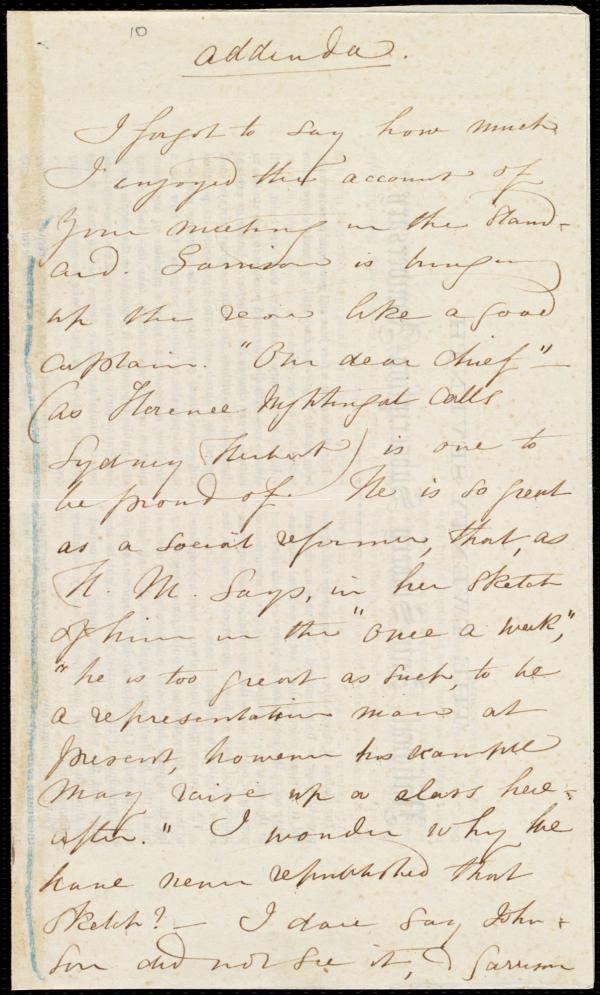 10
addenda.
I forgot to say how much
I enjoyed the account of
your meeting in the Stand-
ard. Garrison is bringing
up the rear like a good
captain. "Our dear chief" —
(as Florence Nightingal calls
Sydney Herbert) is one to
be proud of. He is so great
as a social reformer, that, as
H. M. says, in her sketch
of him in the "once a week",
"he is too great as such, to be
a representative man at
present, however his example
may raise up a class here-
after." I wonder why we
have never republished that
sketch? — I dare say John-
son did not see it, & Garrison